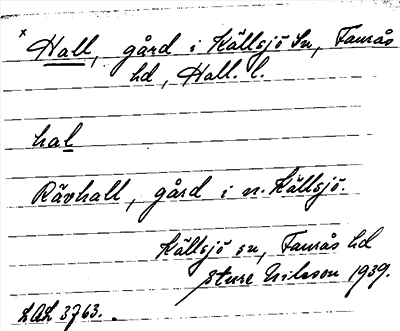 x Hall, gård i Källsjö sn, Faurås
hd, Hall. l.
hal
Rävhall, gård i n. Källsjö.
Källsjö sn, Faurås hd
Sture Nilsson 1939.
LAL 3763.